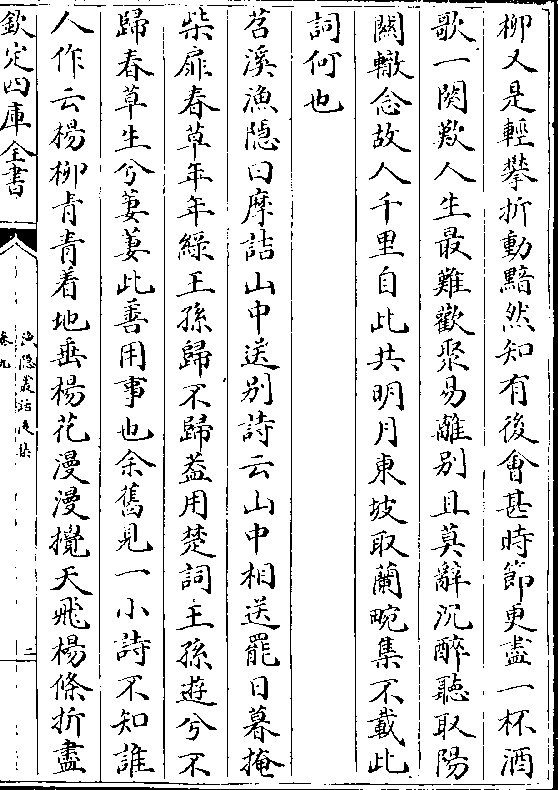 柳又是輕攀折動黯然知有後會甚時節更盡一杯酒
歌一闋歎人生最難歡聚易離别且莫辭沉醉聽取陽
關轍念故人千里自此共明月東坡取蘭畹集不載此
詞何也
苕溪漁隠曰摩詰山中送别詩云山中相送罷日暮掩
柴扉春草年年綠王孫歸不歸葢用楚詞王孫遊兮不
歸春草生兮萋萋此善用事也余舊見一小詩不知誰
人作云楊柳青青着地垂楊花漫漫攪天飛楊條折盡
欽定四庫全書
漁隠叢話後集
卷九
二